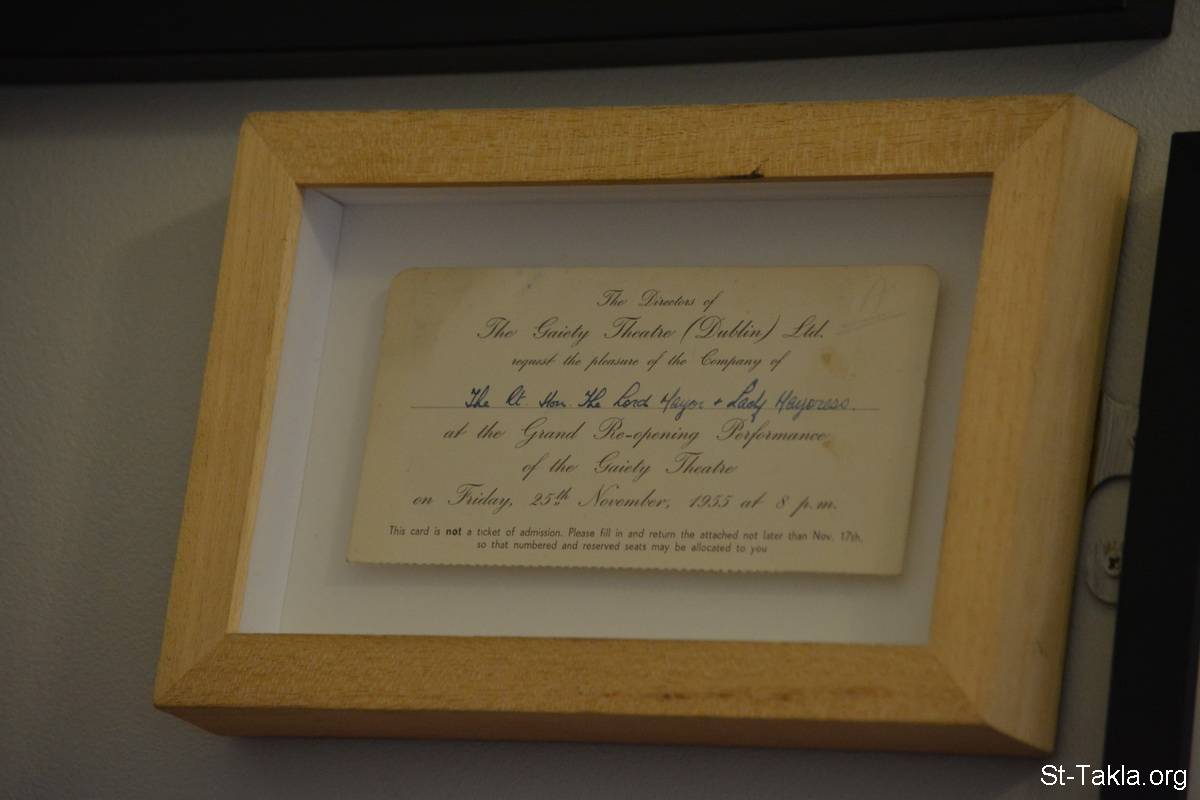 The Directors of
The Gaiety Theatre (Dublin) Ltd.
request the pleasure of the Company of
The Rt. Hon. The Lord Mayor + Lady Mayoress.
at the Grand Re-opening Performance
of the Gaiety Theatre
on Friday, 25th November, 1955 at 8 p.m.
This card is not a ticket of admission. Please fill in and return the attached not later than Nov. 17th,
so that numbered and reserved seats may be allocated to you
St-Takla.org